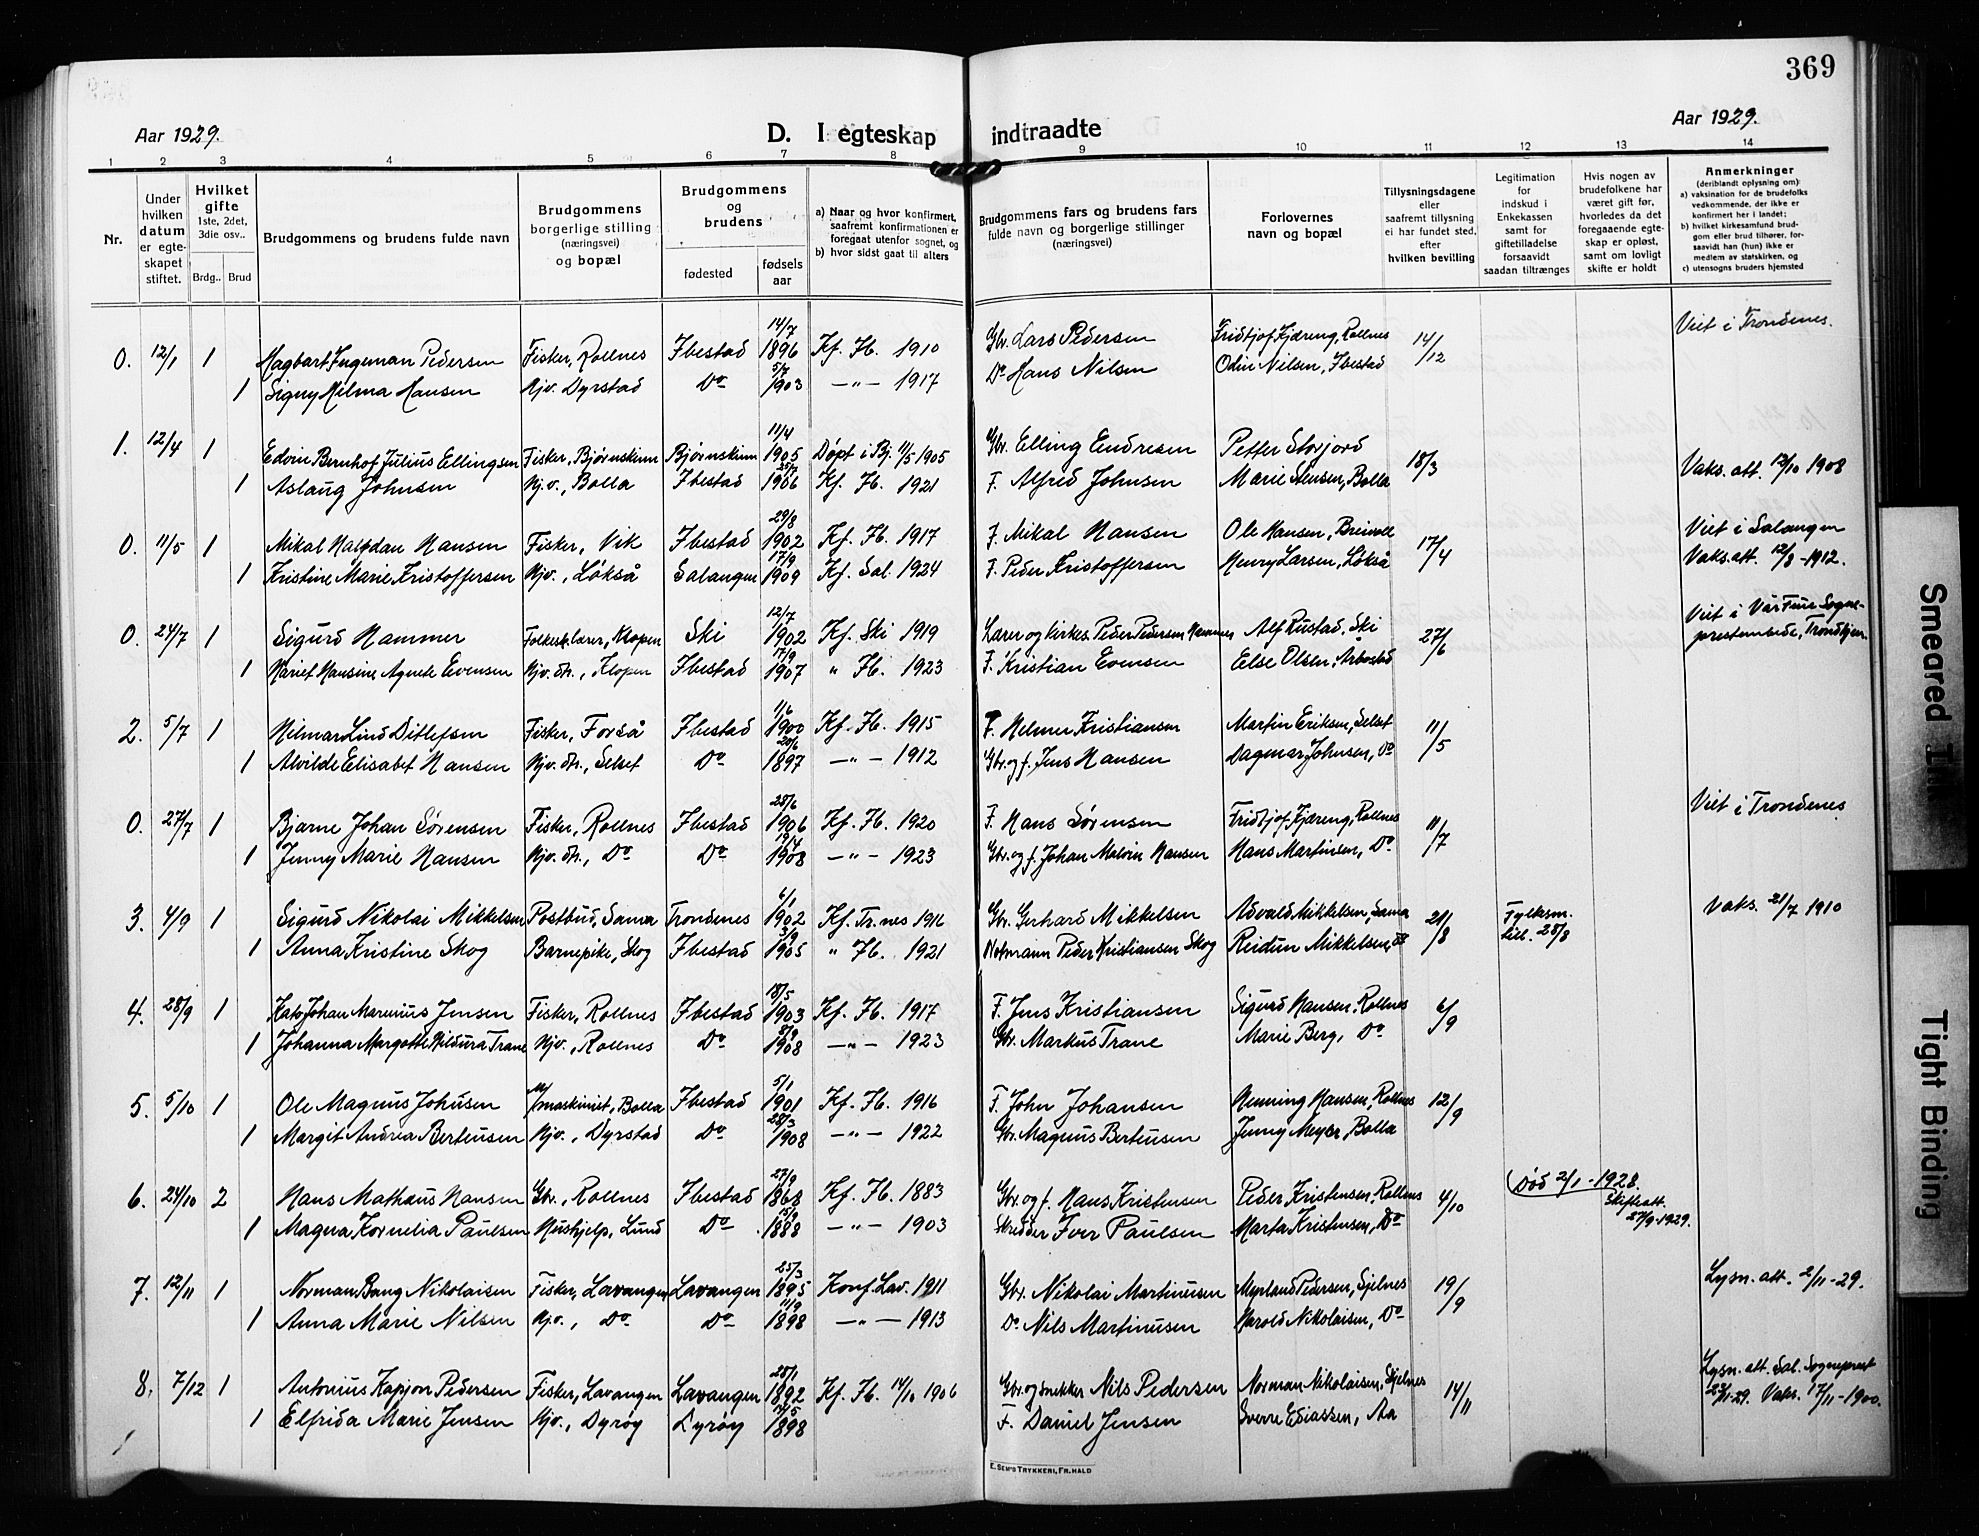 369
Aar 1929. D. I egteskap indtraadte Aar 1929.
1 2 3 4 5 6 7 8 9 10 11 12 13 14
Nr.
Under hvilken datum er egteskapet stiftet.
Hvilket gifte 1ste, 2det, 3die osv..
Brdg.. Brud
Brudgommens og brudens fulde navn
Brudgommens borgerlige stilling (næringsvei) og bopæl
Brudgommens og brudens
fødested
fødsels aar
a) Naar og hvor konfirmert, saafremt konfirmationen er foregaat utenfor sognet, og
b) hvor sidst gaat til alters
Brudgommens fars og brudens fars fulde navn og borgerlige stillinger (næringsvei)
Forlovernes navn og bopæl
Tillysningsdagene eller saafremt tillysning ei har fundet sted, efter hvilken bevilling
Legitimation for indskud i Enkekassen samt for giftetilladelse forsaavidt saadan tiltrænges
Hvis nogen av brudefolkene har været gift før, hvorledes da det foregaaende egteskap er opløst, samt om lovligt skifte er holdt
Anmerkninger (deriblandt oplysning om):
a) vaksination for de brudefolks vedkommende, der ikke er konfirmert her i landet;
b) hvilket kirkesamfund brudgom eller brud tilhører, forsaavidt han (hun) ikke er medlem av statskirken, og
c) utensogns bruders hjemsted
0. 12/1 1 Hagbart Ingeman Pedersen Fisker, Rollnes Ibestad 14/7 1896 Kf. Ib. 1910 Gbr. Lars Pedersen Fridtjof Fjæreng, Rollnes 14/12 Viet i Trondenes.
1 Signy Hilma Hansen Hjv. Dyrstad Do 5/7 1903 —"— 1917 Do Hans Nilsen Odin Nilsen, Ibestad
1. 12/4 1 Edvin Bernhof Julius Ellingsen Fisker, Bjørnskinn Bjørnskinn 11/4 1905 Døpt i Bj. 11/5 1905 Gbr. Elling Endresen Petter Storjord 18/3
1 Aslaug Johnsen Hjv., Bolla Ibestad 1906 Kf. Ib. 1921 F. Alfred Johnsen Marie Stensen, Bolla Vaks. att. 12/10 1908
0. 11/5 1 Mikal Halfdan Hansen Fisker, Vik Ibestad 29/8 1902 Kf. Ib. 1917 F. Mikal Hansen Ole Hansen, Breivoll 17/4 Viet i Salangen
1 Kristine Marie Kristoffersen Hjv., Løkså Salangen 17/9 1909 Kf. Sal. 1924 F. Peder Kristoffersen Henry Larsen, Løkså Vaks. att. 12/8-1912.
0. 24/7 1 Sigurd Hammer Folkesk.lærer, Klopen Ski 12/7 1902 Kf. Ski 1919 Lærer og kirkes. Peder Pedersen Hammer Alf Rustad, Ski 27/6 Viet i Vår Frue Sogneprestembede, Trondhjem.
1 Hariet Hansine Agnete Evensen Hjv. dtr., Klopen Ibestad 17/9 1907 " Ib. 1923 F. Kristian Evensen Else Olsen, Årbostad
2. 5/7 1 Hilmar Lind Ditlefsen Fisker, Forså Ibestad 1/6 1900 Kf. Ib. 1915 F. Helmer Kristiansen Martin Eriksen, Selset 11/5
1 Alvilde Elisabet Hansen Hjv. dtr., Selset Do 20/6 1897 —"— 1912 Gbr. og f. Jens Hansen Dagmar Johnsen, Do
0. 27/7 1 Bjarne Johan Sørensen Fisker, Rollnes Ibestad 28/6 1906 Kf. Ib. 1920 F. Hans Sørensen Fridtjof Fjæreng, Rollnes 11/7 Viet i Trondenes
1 Jenny Marie Hansen Hjv. dtr., Do Do 19/4 1908 —"— 1923 Gbr. og f. Johan Malvin Hansen Hans Martinsen, Do
3. 4/9 1 Sigurd Nikolai Mikkelsen Postbud, Sama Trondenes 6/1 1902 Kf. Tr.nes 1916 Gbr. Gerhard Mikkelsen Advald Mikkelsen, Sama 21/8 Fylkesm. till. 28/8 Vaks. 21/7 1910
1 Anna Kristine Skog Barnepike, Skog Ibestad 3/9 1905 " Ib. 1921 Notmann Peder Kristiansen Skog Reidun Mikkelsen, Do
4. 28/9 1 Kato Johan Marenius Jensen Fisker, Rollnes Ibestad 18/5 1903 Kf. Ib. 1917 F. Jens Kristiansen Sigurd Hansen, Rollnes 6/9
1 Johanna Margotte Hildura Trane Hjv., Rollnes Do 8/9 1908 —"— 1923 Gbr. Markus Trane Marie Berg, Do
5. 5/10 1 Ole Magnus Johnsen maskinist, Bolla Ibestad 5/1 1901 Kf. Ib. 1916 F. John Johansen Henning Hansen, Rollnes 12/9
1 Margit Andrea Berteusen Hjv., Dyrstad Do 28/3 1908 —"— 1922 Gbr. Magnus Berteusen Jenny Meyer, Bolla
6. 24/10 2 Hans Mathæus Hansen Gbr., Rollnes Ibestad 27/9 1868 Kf. Ib. 1883 Gbr. og f. Hans Kristensen Peder Kristensen, Rollnes 4/10 (Død 2/1-1928. Skifteatt. 27/9-1929.
1 Magna Kornelia Paulsen Hushjelp, Lund Do 15/9 1888 —"— 1903 Skredder Iver Paulsen Marta Kristensen, Do
7. 12/11 1 Norman Bang Nikolaisen Fisker, Lavangen Lavangen 25/3 1895 Konf. Lav. 1911 Gbr. Nikolai Martinusen Myrland Pedersen, Spelnes 19/9 Lysn. att. 2/11-29.
1 Anna Marie Nilsen Hjv., Do Do 11/9 1898 —"— 1913 Do Nils Martinusen Harold Nikolaisen, Do
8. 7/12 1 Antonius Kapjon Pedersen Fisker, Lavangen Lavangen 28/1 1892 Kf. Ib. 14/10 1906 Gbr. og snekker Nils Pedersen Norman Nikolaisen, Spelnes 14/11 Lysn. att. Sal. Sogneprest
1 Elfrida Marie Jensen Hjv., Dyrøy Dyrøy 1898 F. Daniel Jensen Sverre Esiassen, Aa 29. Vaks. 17/11-1900.
E. SEM'S TRYKKERI, FR.HALD
Smeared Ink
Tight Binding